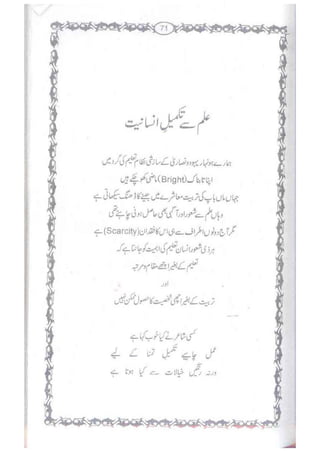 71
علم سے تکمیلِ انسانیت
ہمارے ہونہار یہود و نصاریٰ کے سازشی نظام تعلیم کی گرد میں
اپنا تابناک (Bright) ماضی کھو چکے ہیں
جہاں ماں باپ کی تربیت معاشرے میں جینے کا ڈھنگ سیکھاتی ہے
وہاں علم سے شعور اور آگہی بھی حاصل ہونی چاہیے تھی
مگر آج دونوں اطراف سے ہی اس کا فقدان (Scarcity) ہے
ہر ذی شعور انسان تعلیم کی اہمیت کو جانتا ہے کہ
تعلیم کے بغیر اچھے مقام و مرتبہ
اور
تربیت کے بغیر اچھی شخصیت کا حصول ممکن نہیں
کسی شاعر نے کیا خوب کہا ہے
عمل چاہیے تکمیل تمنا کے لیے
ورنہ رنگیں خیالات سے کیا ہوتا ہے